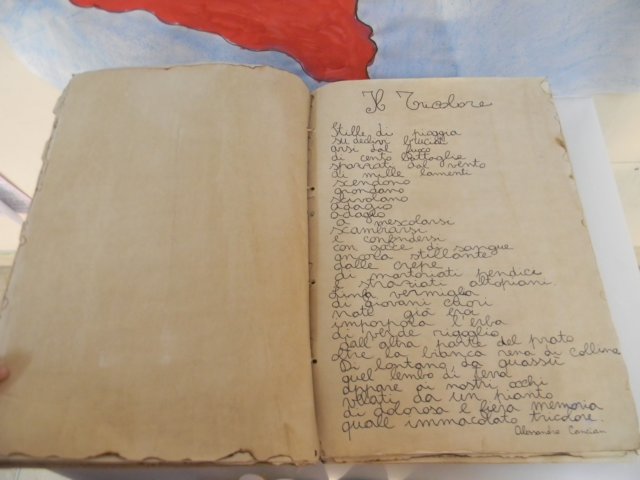 Il Tricolore
Stille di pioggia
su declivi bruciati
arsi dal fuoco
di cento battaglie
sparzati dal vento
di mille lamenti
scendono
grondano
scivolano
adagio
adagio
a mescolarsi
scambiarsi
e confondersi
con gocce di sangue
ancora stillante
dalle crepe
di martoriati pendici
e straziati altopiani.
Linfa vermiglia
di giovani cuori
nate già eroi
imporpora l'erba
di verde rigoglio
dall'altra parte del prato
oltre la bianca rena di collina
Di lontano, da quassù
quel lembo di terra
appare ai nostri occhi
velati da un pianto
di dolorosa e fiera memoria
quale immacolato tricolore.
Alessandro Cancian